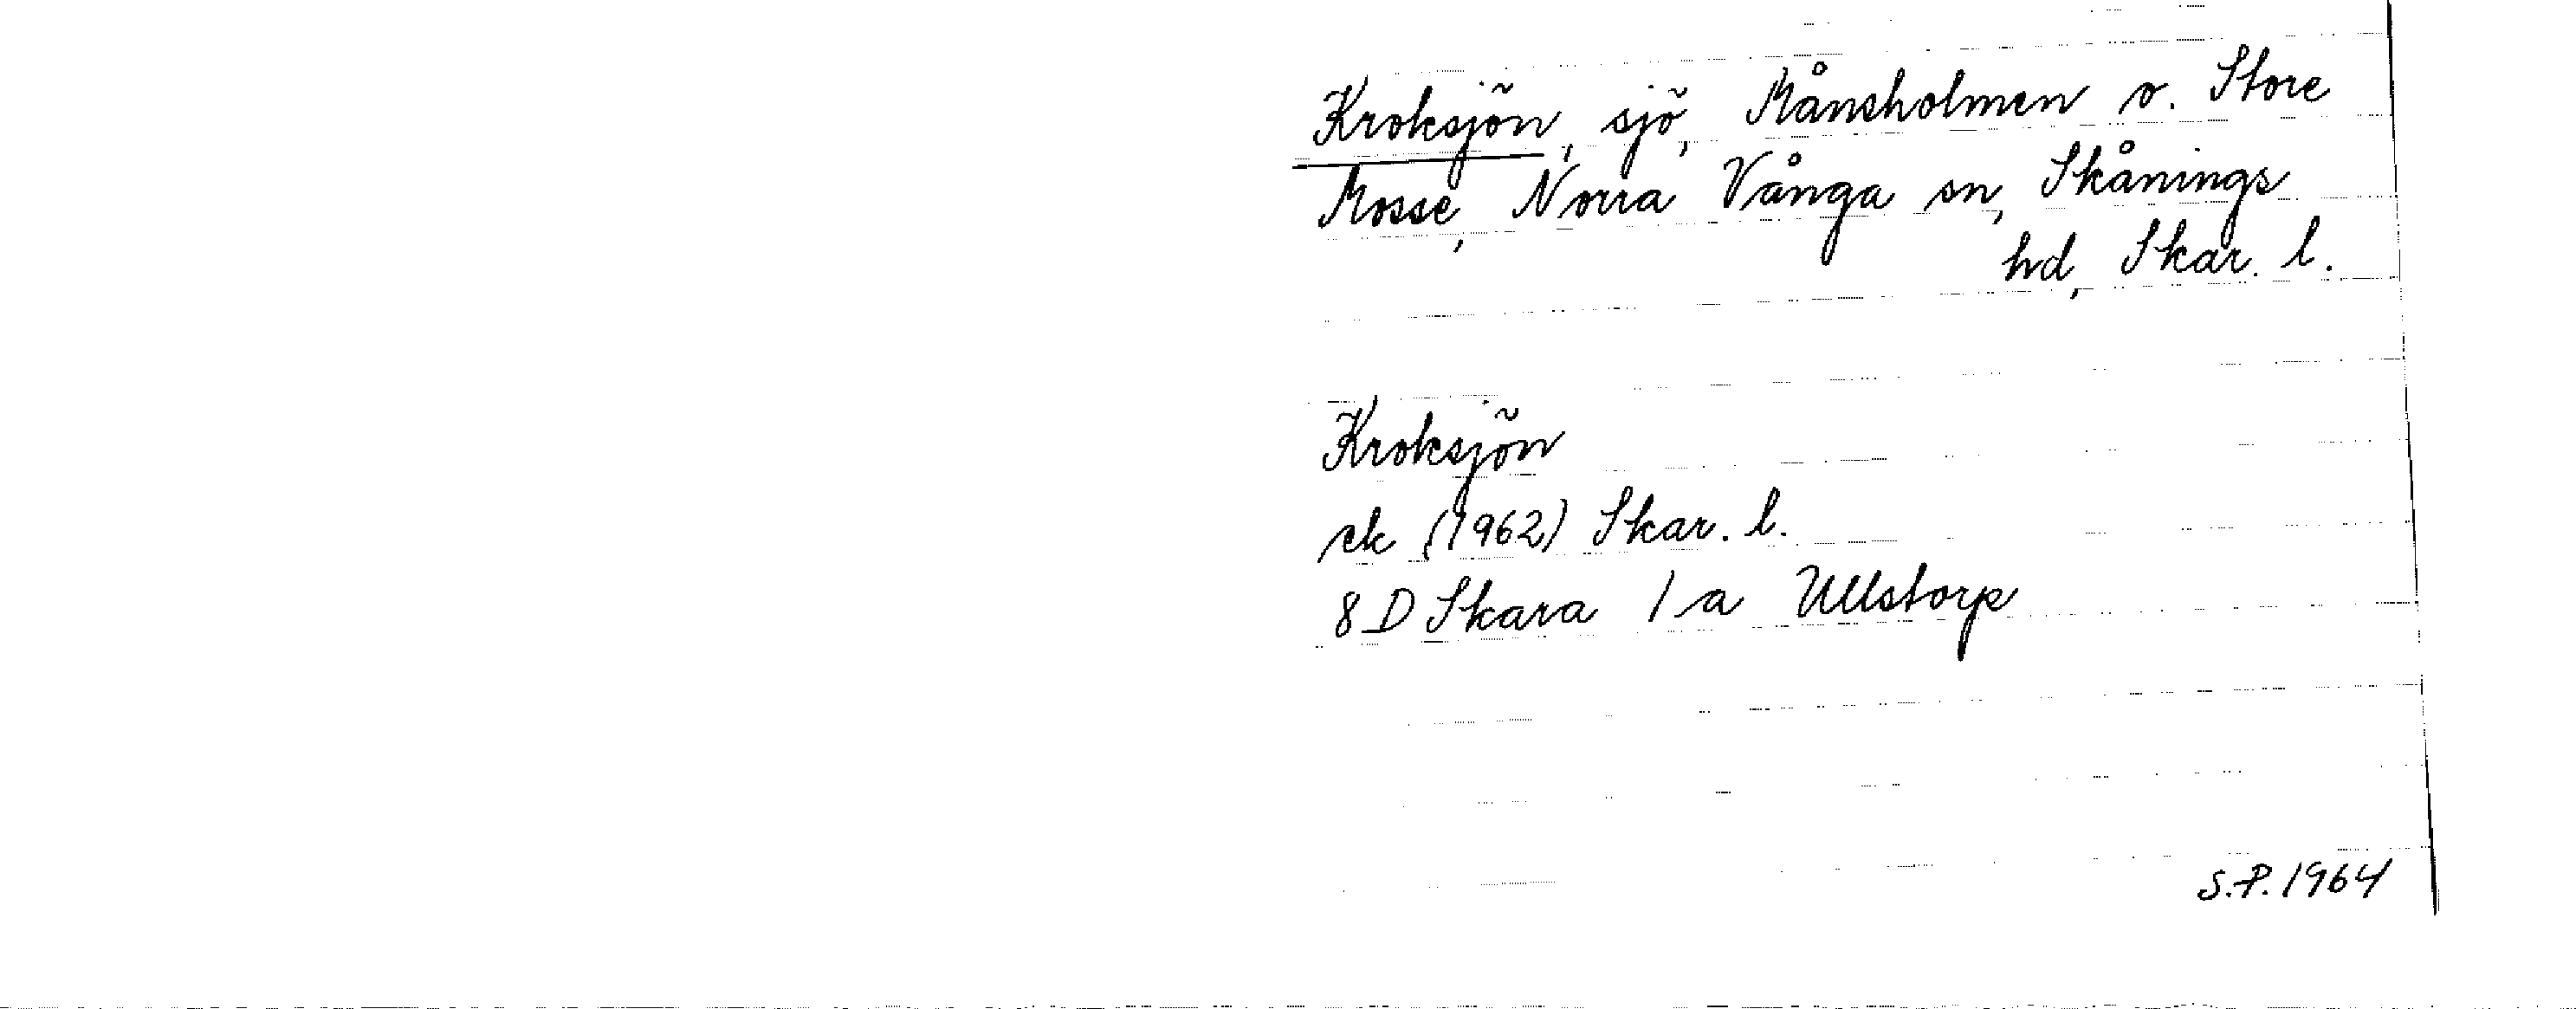 Kroksjön, sjö, Månsholmen o. Store
Mosse, Norra Vånga sn, Skånings
hd, Skar. l.
Kroksjön
ek (1962) Skar. l.
8 D Skara 1 a Ullstorp
S.P. 1964